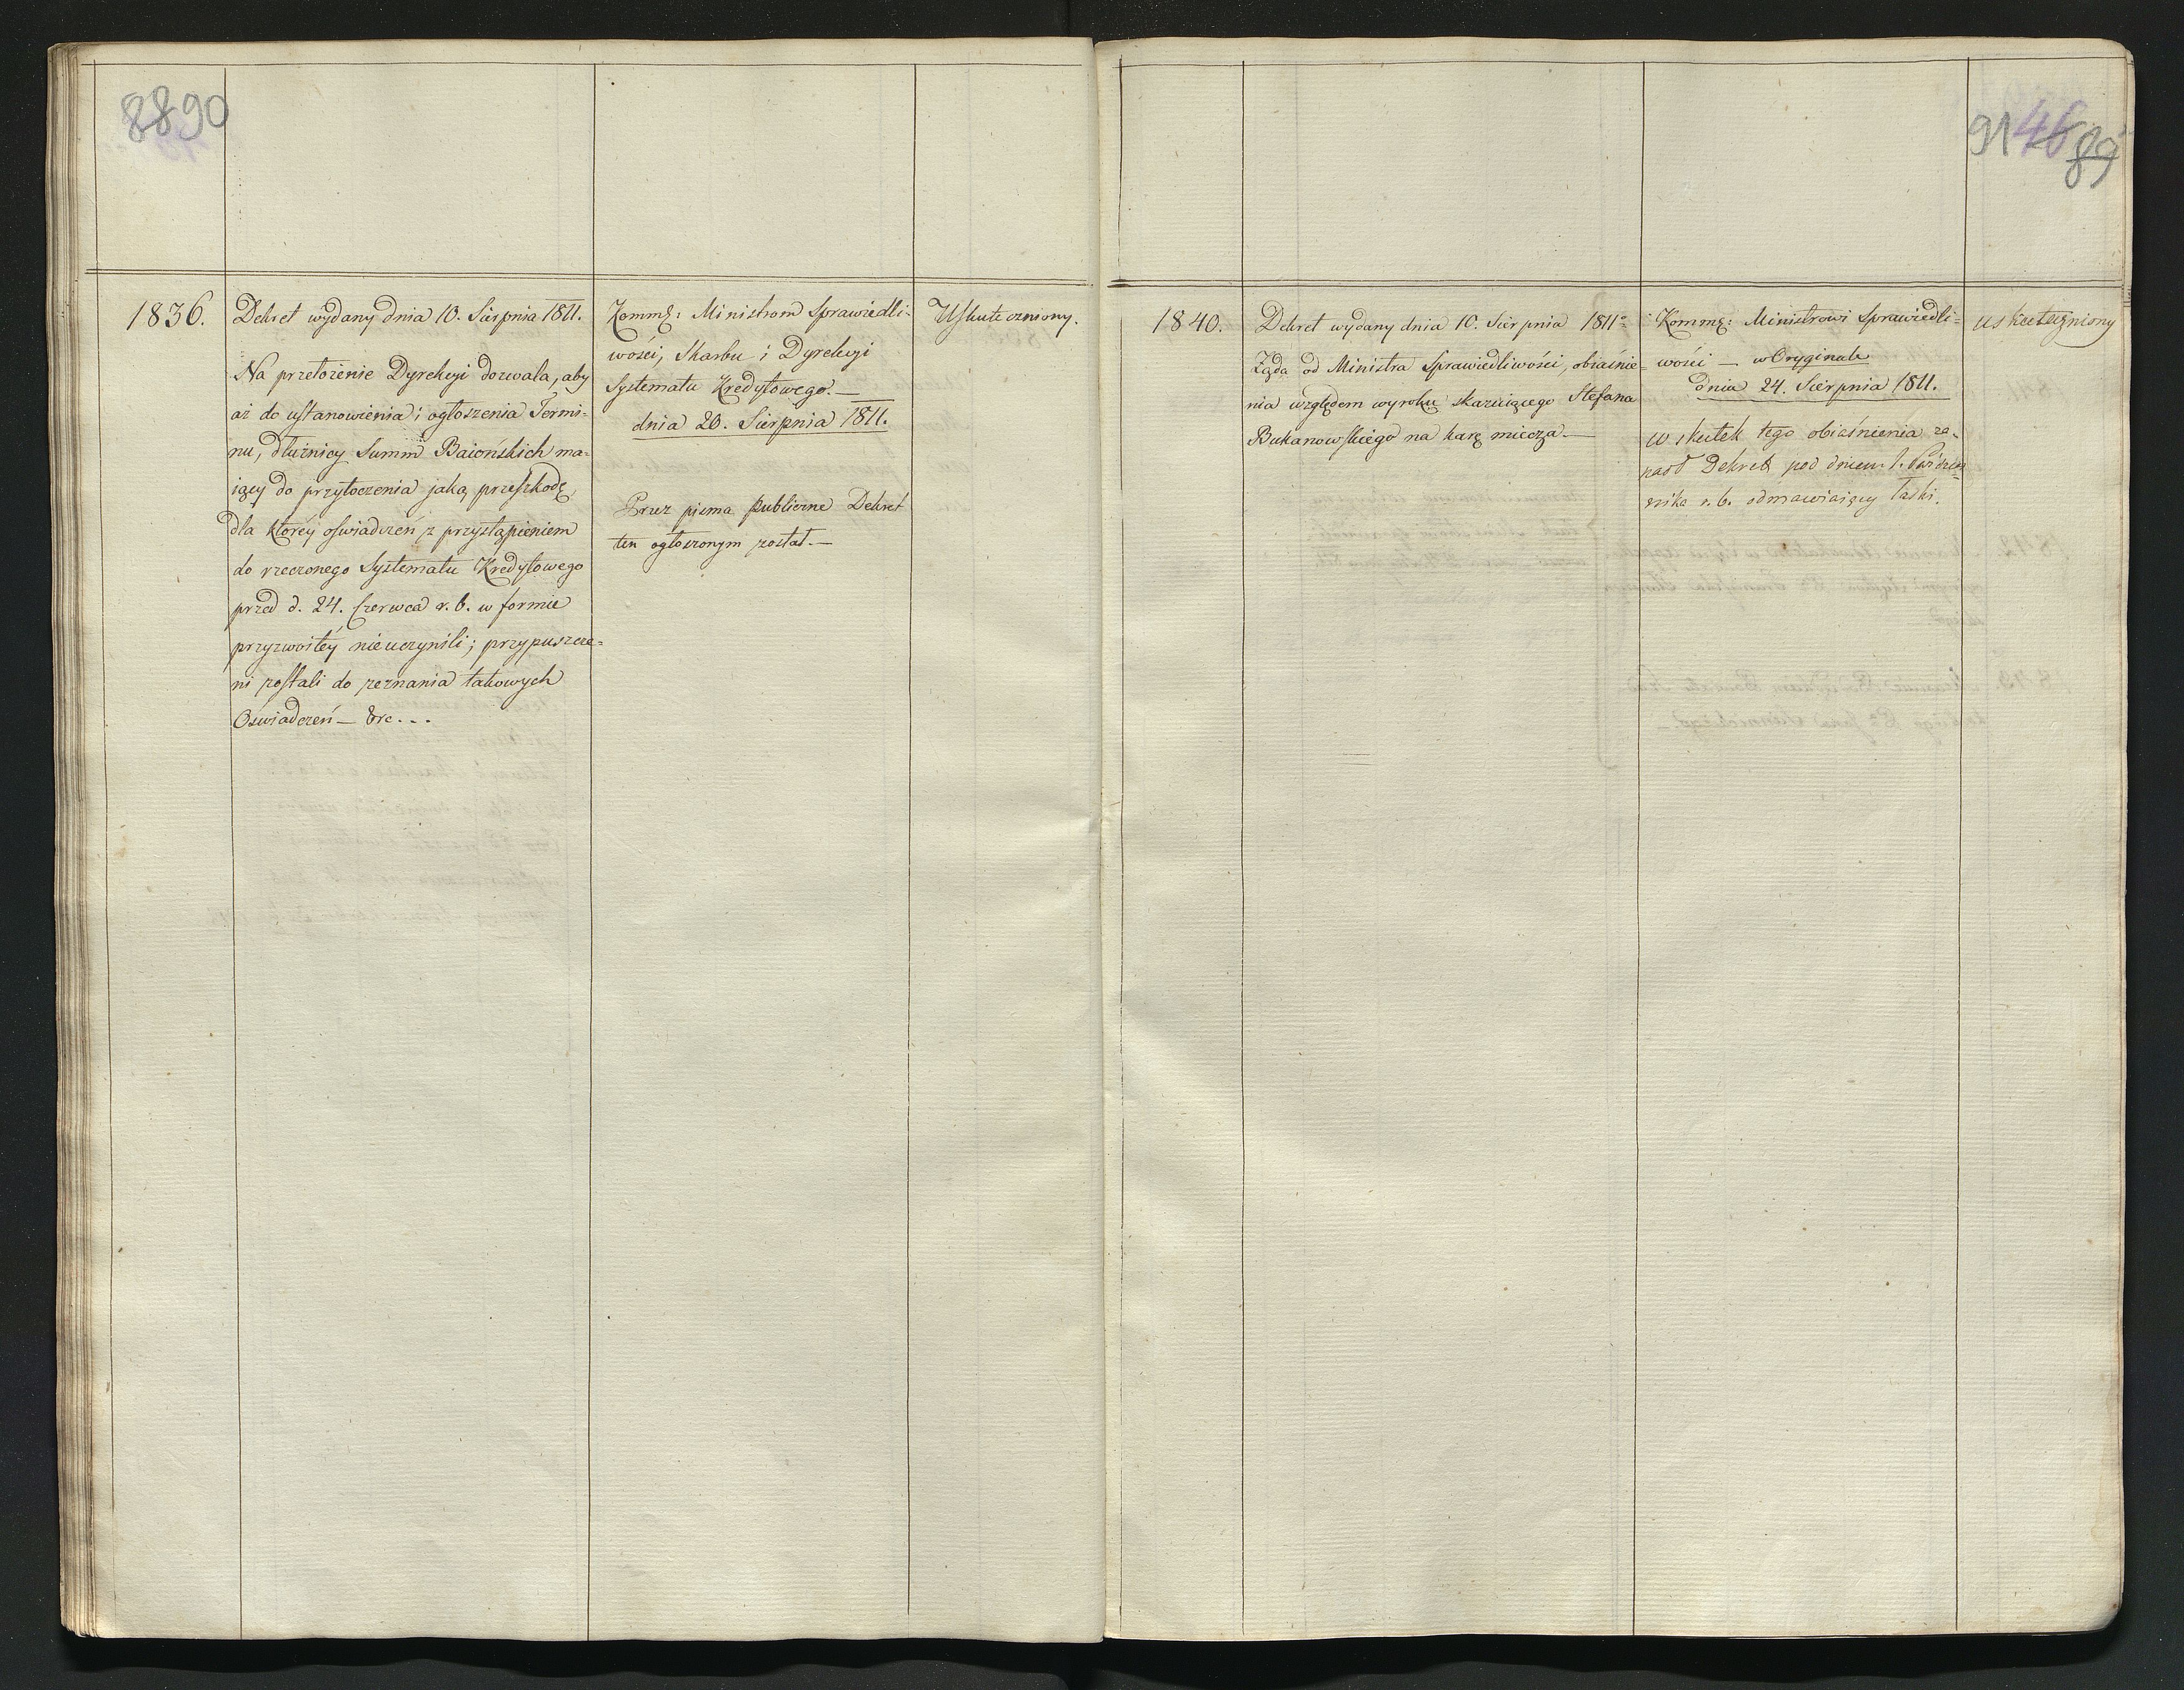 8890
1836.
Dekret wydany dnia 10. Sierpnia 1811.
Na przełożenie Dyrekcyi dozwala, aby
aż do ustanowienia i ogłoszenia Termi-
nu, dłużnicy Summ Baiońskich ma-
iący do przytoczenia jaką przeszkodę,
dla któréy oświadczeń z przystąpieniem
do rzeczonego Systematu Kredytowego
przed d. 24. Czerwca r. b. w formie
przyzwoitéy nieuczynili; przypuszcze-
ni zostali do zeznania takowych
Oświadczeń — &c...
Kommę: Ministrom Sprawiedli-
wości, Skarbu i Dyrekcyi
Systematu Kredytowego. —
dnia 20. Sierpnia 1811.
Przez pisma publiczne Dekret
ten ogłoszonym został. —
Uskuteczniony.
91 46 89
1840.
Dekret wydany dnia 10. Sierpnia 1811º
Żąda od Ministra Sprawiedliwości, obiaśnie-
nia względem wyroku skazuiącego Stefana
Bukanowskiego na karę miecza —
Kommę: Ministrowi Sprawiedli-
wości — w Oryginale
dnia 24. Sierpnia 1811.
w skutek tego obiaśnienia za-
padł Dekret pod dniem 1. Paździer-
nika r. b. odmawiaiący łaski.
uskuteczniony